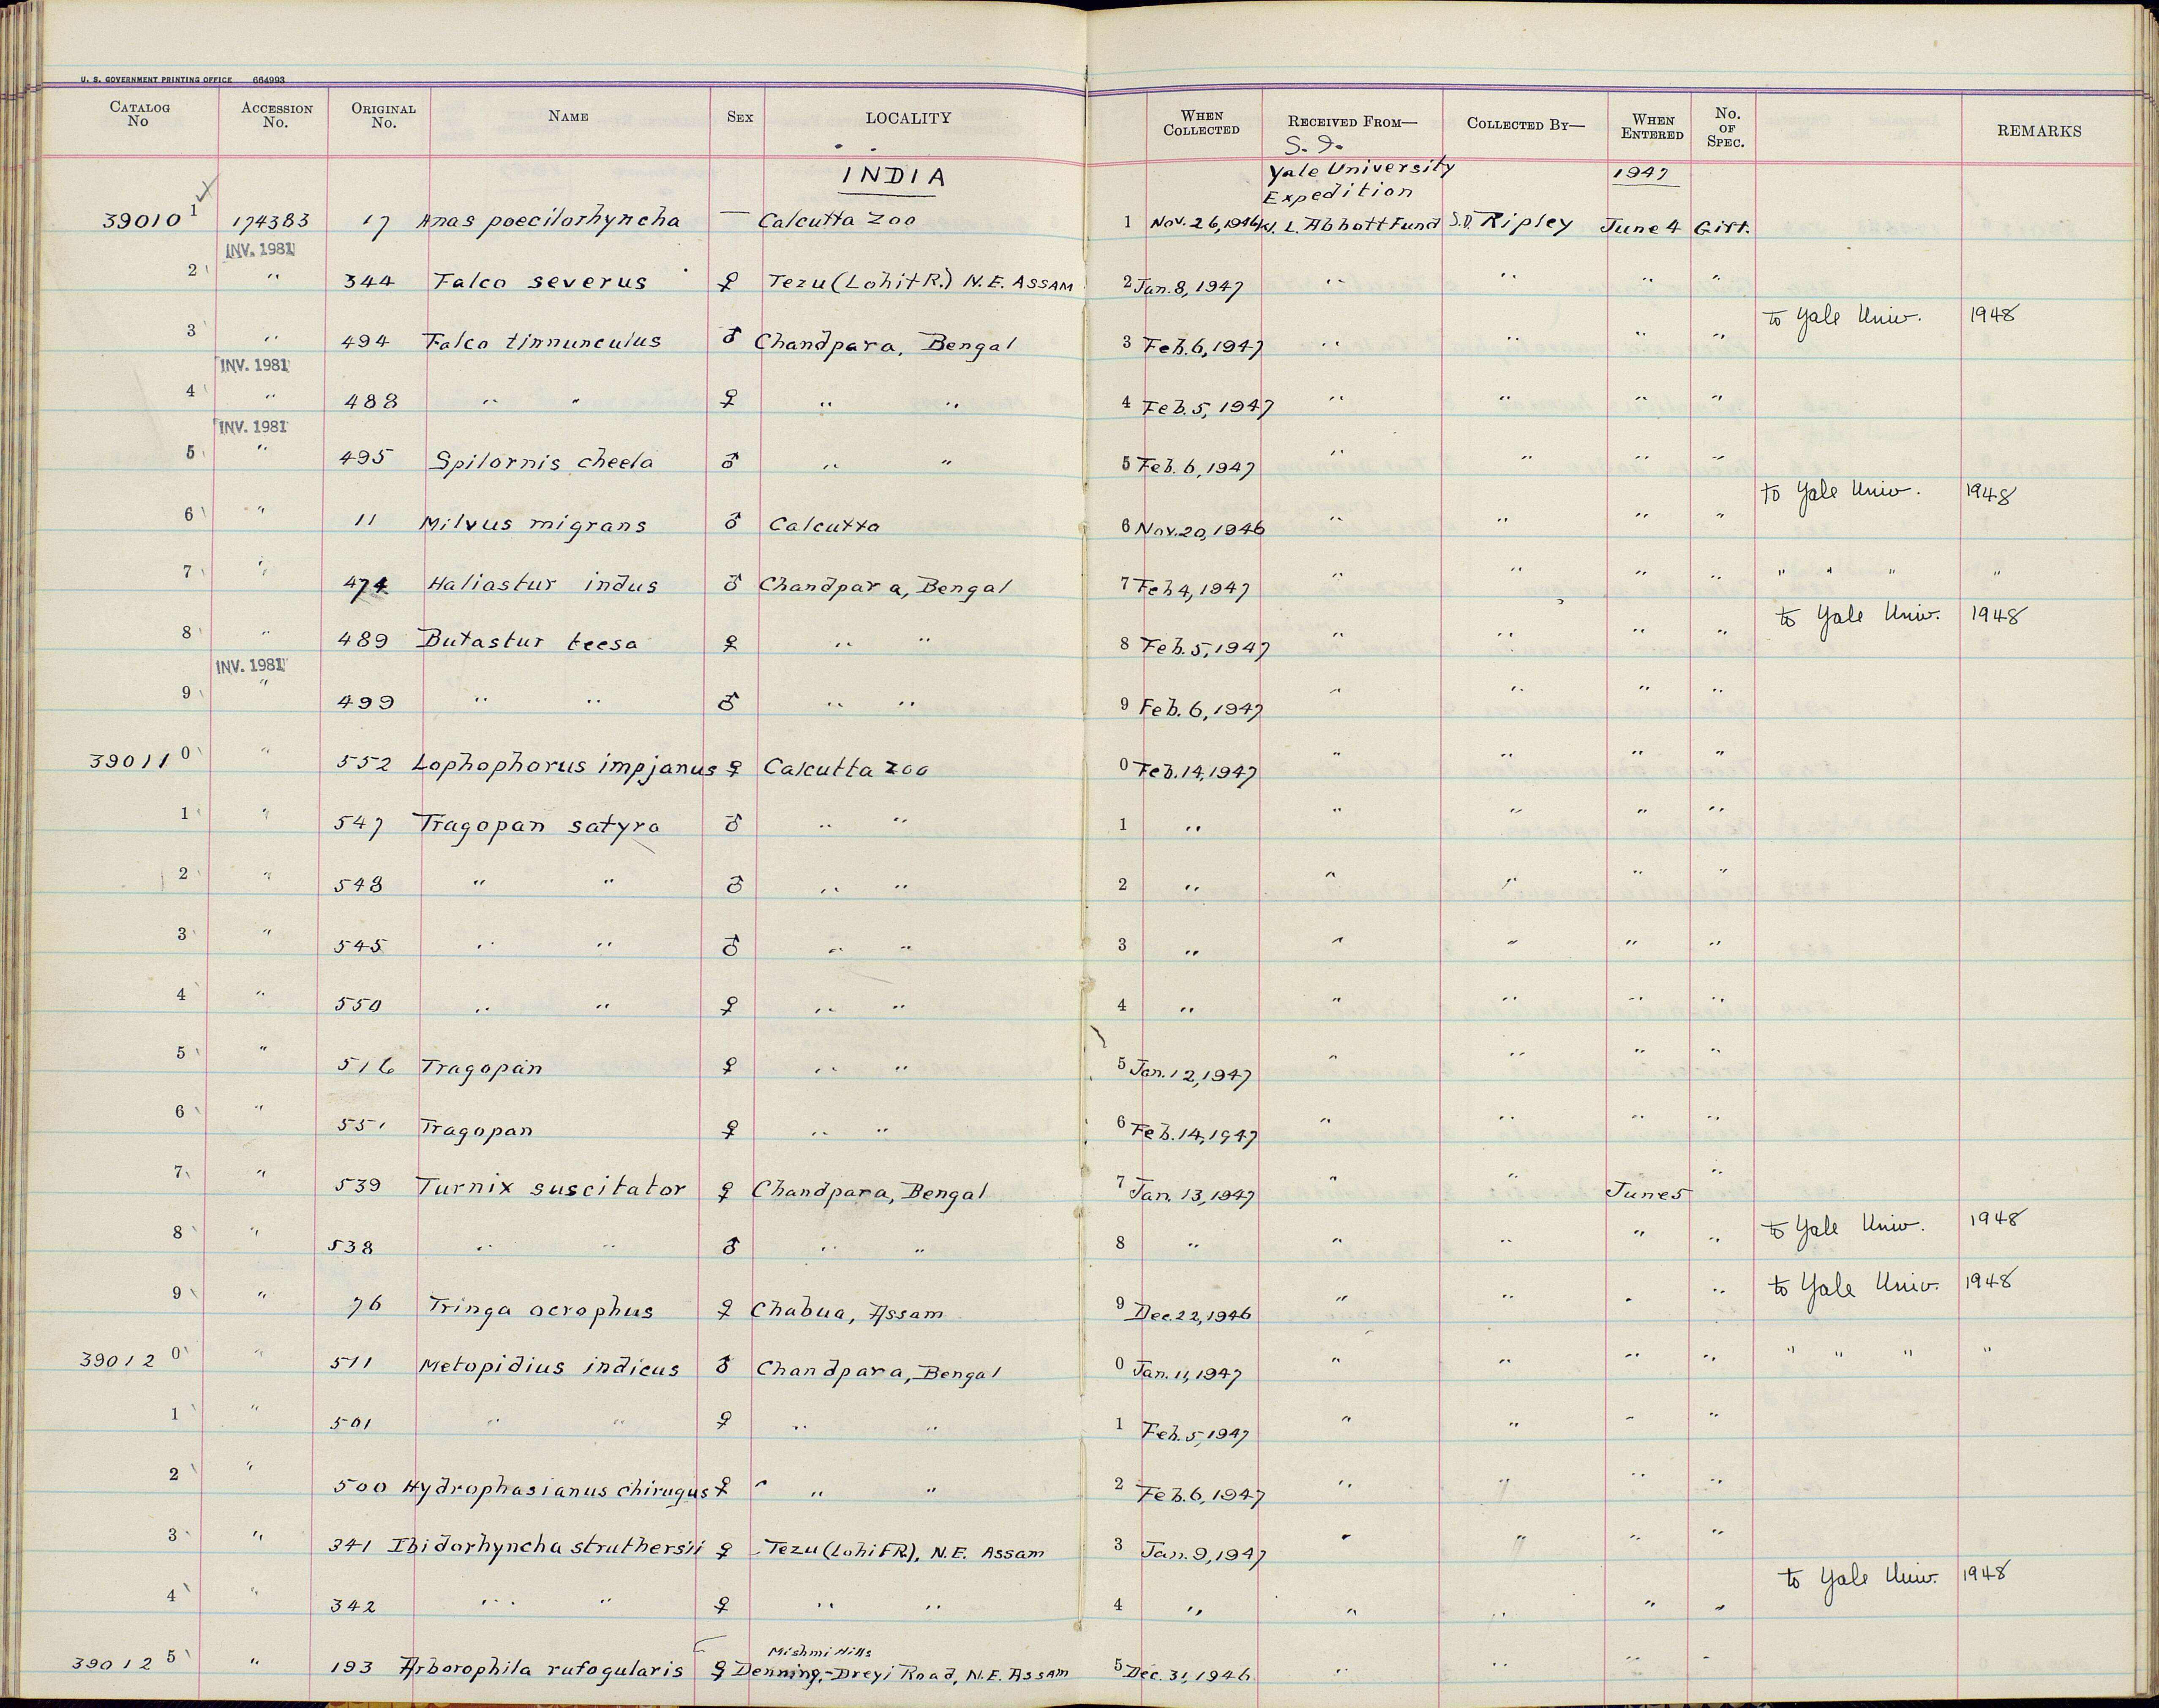 U. S. GOVERNMENT PRINTING OFFICE 664993
CATALOG No ACCESSION No. ORIGINAL No. NAME SEX LOCALITY WHEN COLLECTED RECEIVED FROM— COLLECTED BY— WHEN ENTERED No. OF SPEC. REMARKS
S. I.
INDIA Yale University Expedition 1947
39010 1 174383 17 Anas poecilorhyncha — Calcutta Zoo 1 Nov. 26, 1946 W. L. Abbott Fund S.D. Ripley June 4 Gift.
INV. 1981
2 " 344 Falco severus ♀ Tezu (Lohit R.) N.E. ASSAM 2 Jan. 8, 1947 " " " "
3 " 494 Falco tinnunculus ♂ Chandpara, Bengal 3 Feb. 6, 1947 " " " " to Yale Univ. 1948
INV. 1981
4 " 488 " " ♀ " " 4 Feb. 5, 1947 " " " "
INV. 1981
5 " 495 Spilornis cheela ♂ " " 5 Feb. 6, 1947 " " " "
6 " 11 Milvus migrans ♂ Calcutta 6 Nov. 20, 1946 " " " " to Yale Univ. 1948
7 " 474 Haliastur indus ♂ Chandpara, Bengal 7 Feb 4, 1947 " " " " " " " "
8 " 489 Butastur teesa ♀ " " 8 Feb. 5, 1947 " " " " to Yale Univ. 1948
INV. 1981
9 " 499 " " ♂ " " 9 Feb. 6, 1947 " " " "
39011 0 " 552 Lophophorus impjanus ♀ Calcutta Zoo 0 Feb. 14, 1947 " " " "
1 " 547 Tragopan satyra ♂ " " 1 " " " " "
2 " 548 " " ♂ " " 2 " " " " "
3 " 545 " " ♂ " " 3 " " " " "
4 " 550 " " ♀ " " 4 " " " " "
5 " 516 Tragopan ♀ " " 5 Jan. 12, 1947 " " " "
6 " 551 Tragopan ♀ " " 6 Feb. 14, 1947 " " " "
7 " 539 Turnix suscitator ♀ Chandpara, Bengal 7 Jan. 13, 1947 " " June 5 "
8 " 538 " " ♂ " " 8 " " " " " to Yale Univ. 1948
9 " 76 Tringa ocrophus ♀ Chabua, Assam 9 Dec. 22, 1946 " " " " to Yale Univ. 1948
39012 0 " 511 Metopidius indicus ♂ Chandpara, Bengal 0 Jan. 11, 1947 " " " " " " " "
1 " 501 " " ♀ " " 1 Feb. 5, 1947 " " " "
2 " 500 Hydrophasianus chirugus ♀ " " " 2 Feb. 6, 1947 " " " "
3 " 341 Ibidorhyncha struthersii ♀ Tezu (Lohit R.), N.E. Assam 3 Jan. 9, 1947 " " " "
4 " 342 " " ♀ " " 4 " " " " " to Yale Univ. 1948
Mishmi Hills
39012 5 " 193 Arborophila rufogularis ♀ Denning-Dreyi Road, N.E. Assam 5 Dec. 31, 1946 " " " "